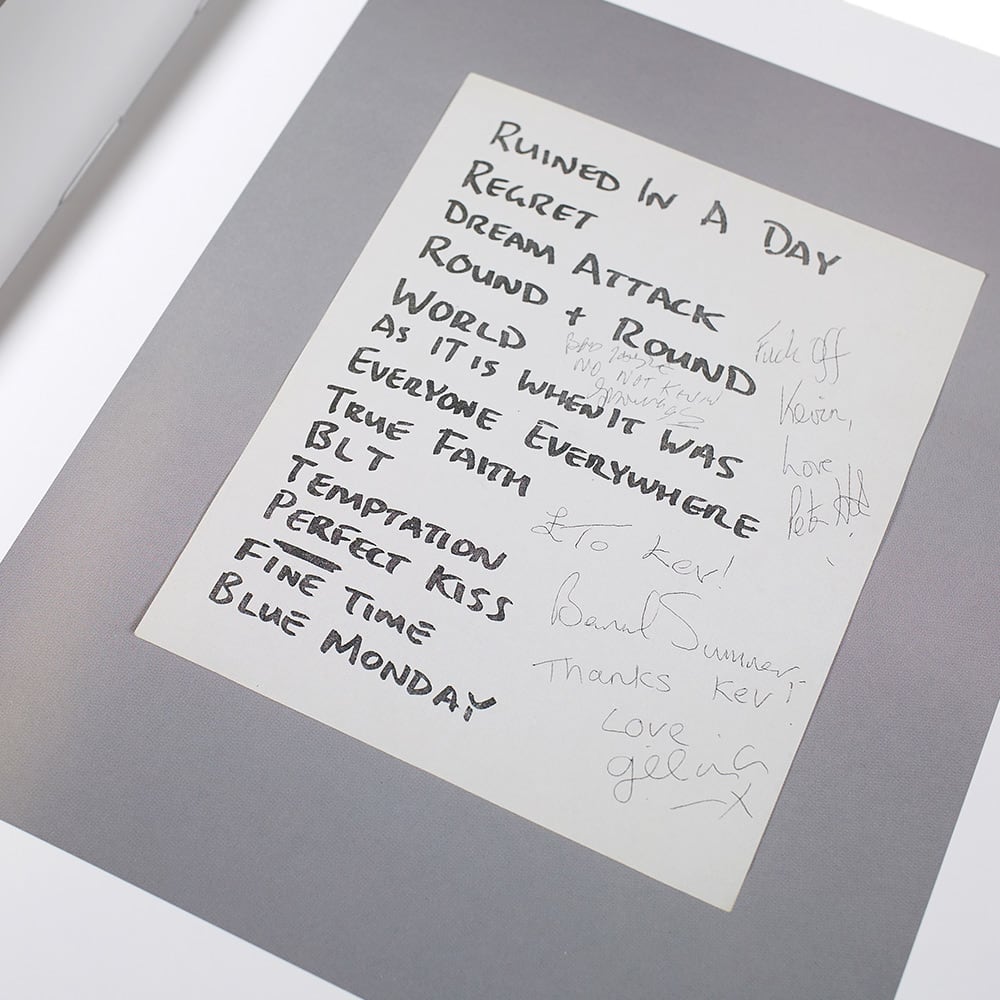 RUINED IN A DAY
REGRET
DREAM ATTACK
ROUND + ROUND
WORLD
AS IT IS WHEN IT WAS
EVERYONE EVERYWHERE
TRUE FAITH
BLT
TEMPTATION
PERFECT KISS
FINE TIME
BLUE MONDAY
Fuck Off
Kevin,
Love
NO NOT
To Kev!
Sumner
Thanks Kev!
Love
X